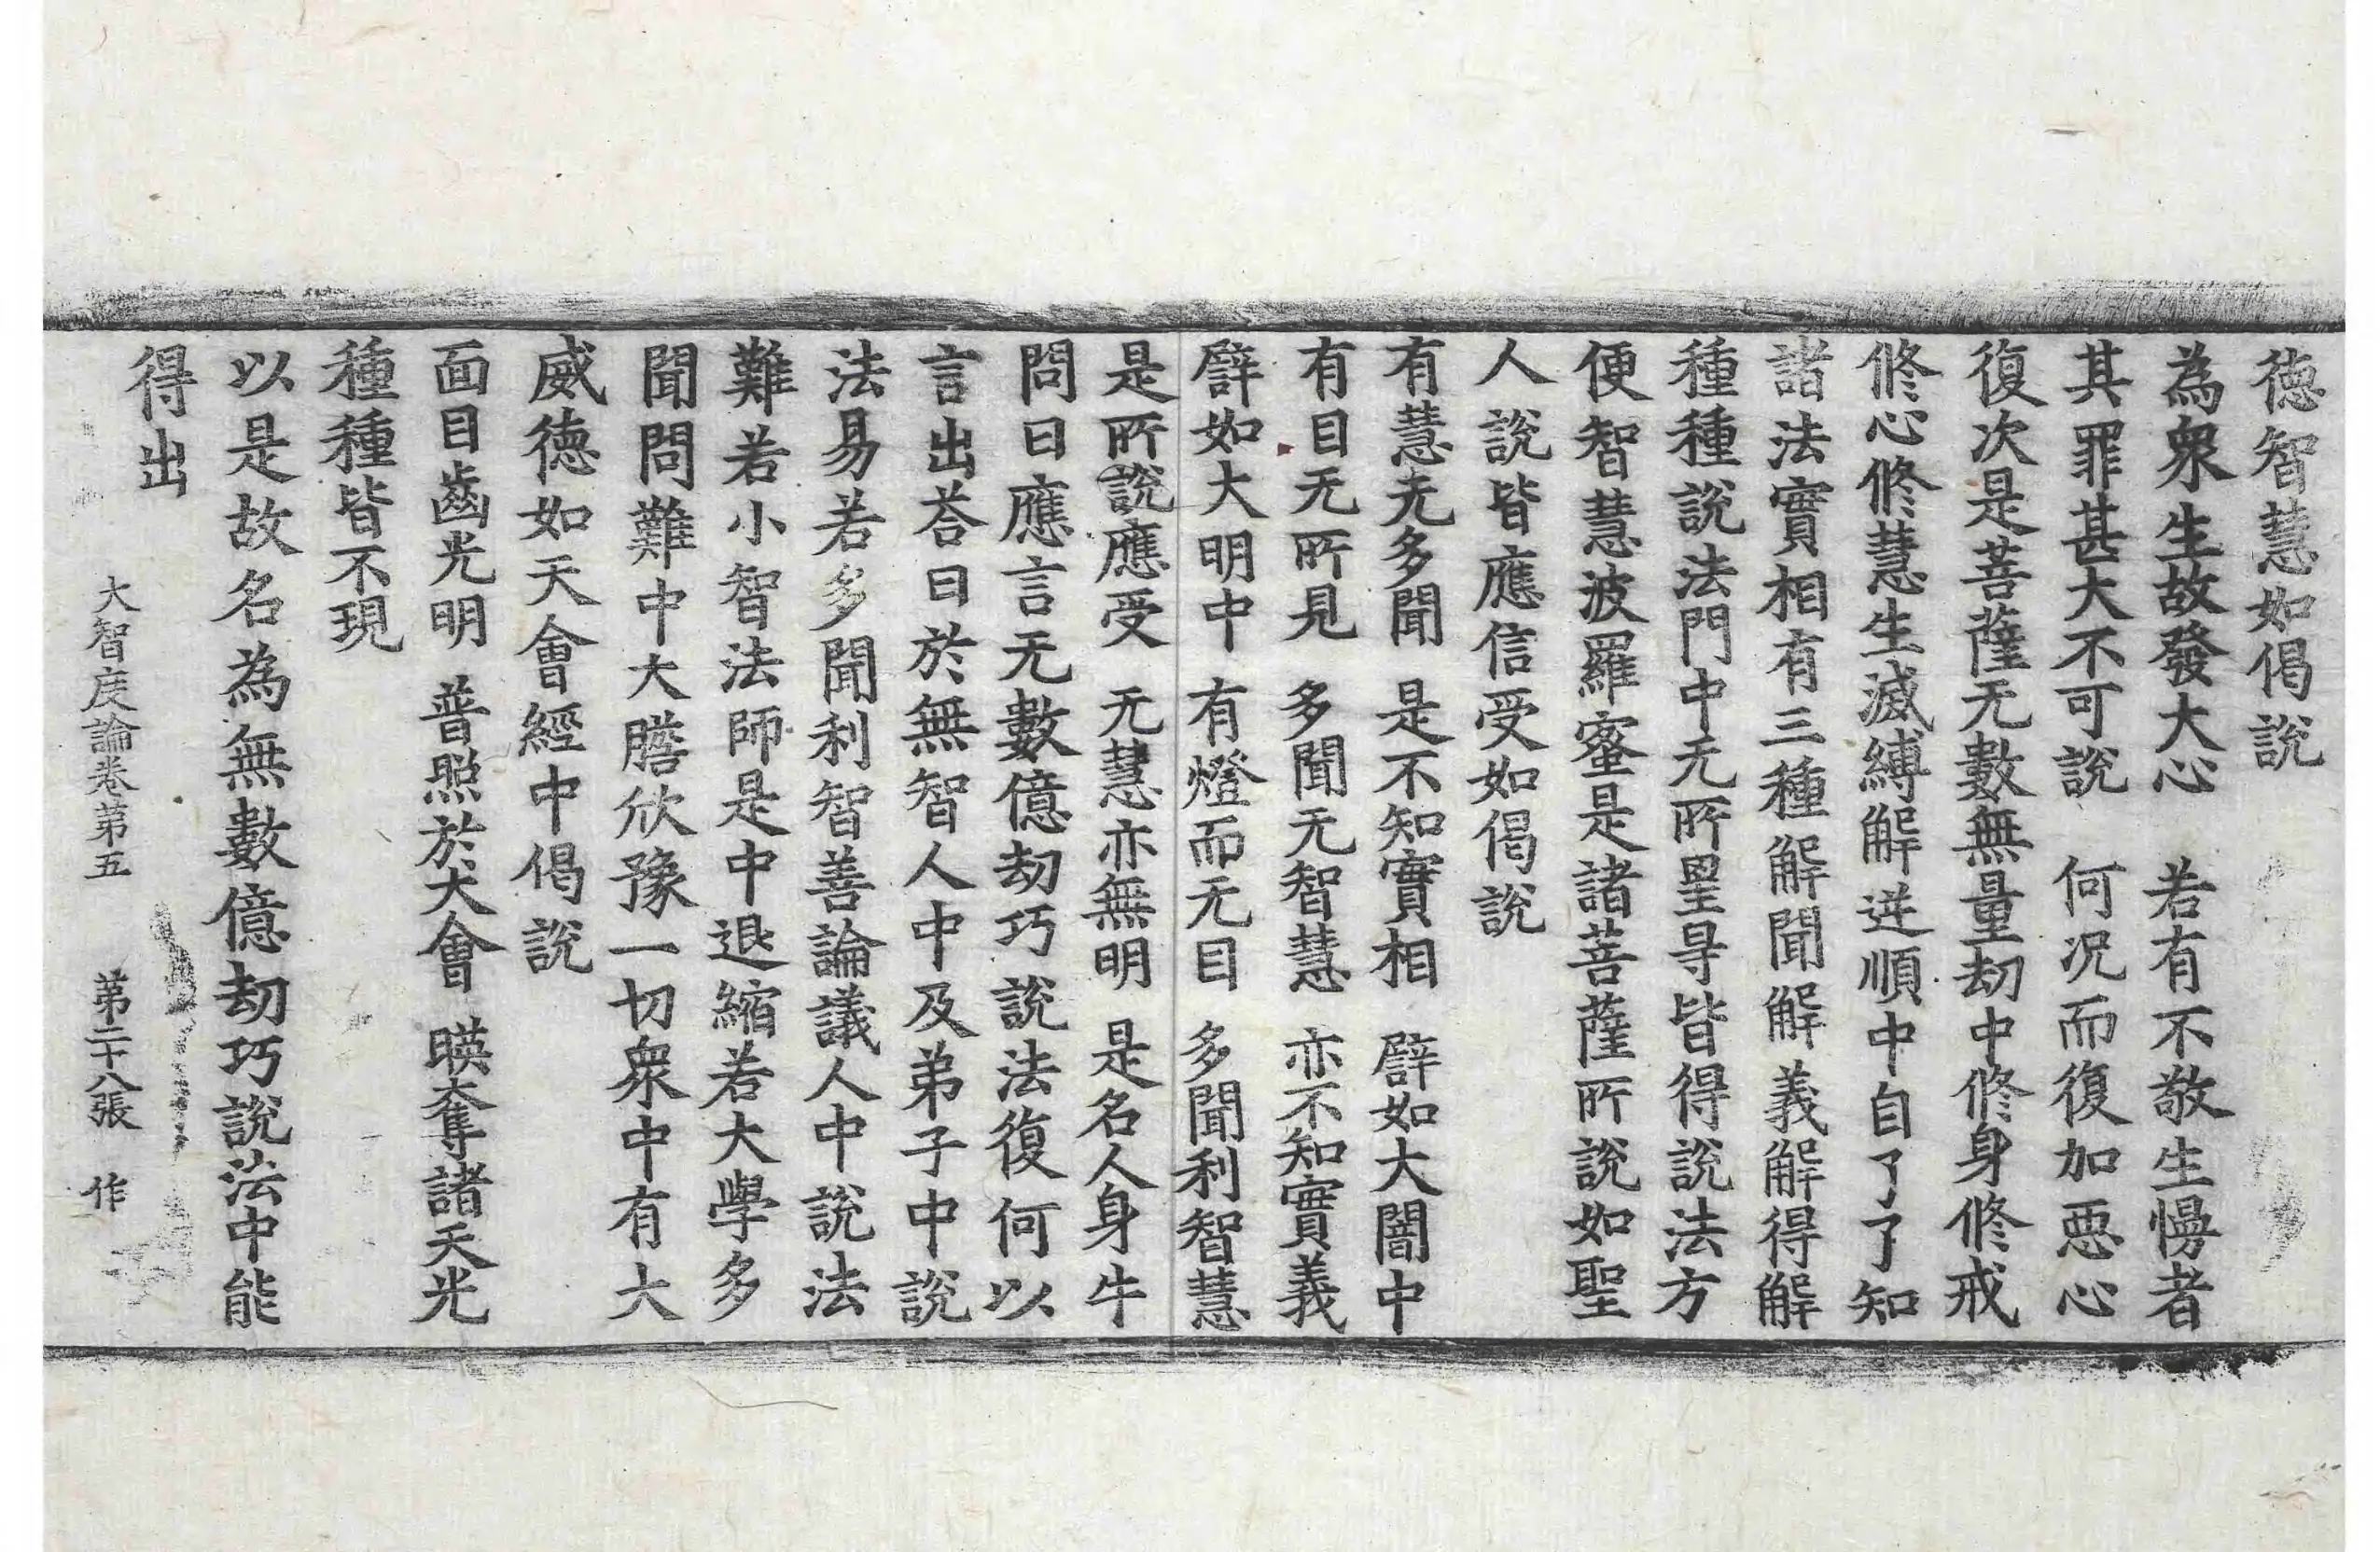 徳智慧如偈說
為衆生故發大心　若有不敬生慢者
其罪甚大不可說　何况而復加惡心
復次是菩薩无數無量劫中修身修戒
修心修慧生滅縛解逆順中自了了知
諸法實相有三種解聞解義解得解
種種說法門中无所罣㝵皆得說法方
便智慧波羅蜜是諸菩薩所說如聖
人說皆應信受如偈說
有慧无多聞　是不知實相　譬如大闇中
有目无所見　多聞无智慧　亦不知實義
譬如大明中　有燈而无目　多聞利智慧
是所說應受　无慧亦無明　是名人身牛
問曰應言无數億劫巧說法復何以
言出荅曰於無智人中及弟子中說
法易若多聞利智善論議人中說法
難若小智法師是中退縮若大學多
聞問難中大膽欣豫一切衆中有大
威徳如天會經中偈說
面目齒光明　普照於大會　暎奪諸天光
種種皆不現
以是故名為無數億劫巧說法中能
得出
大智度論卷第五　第二十八張　作